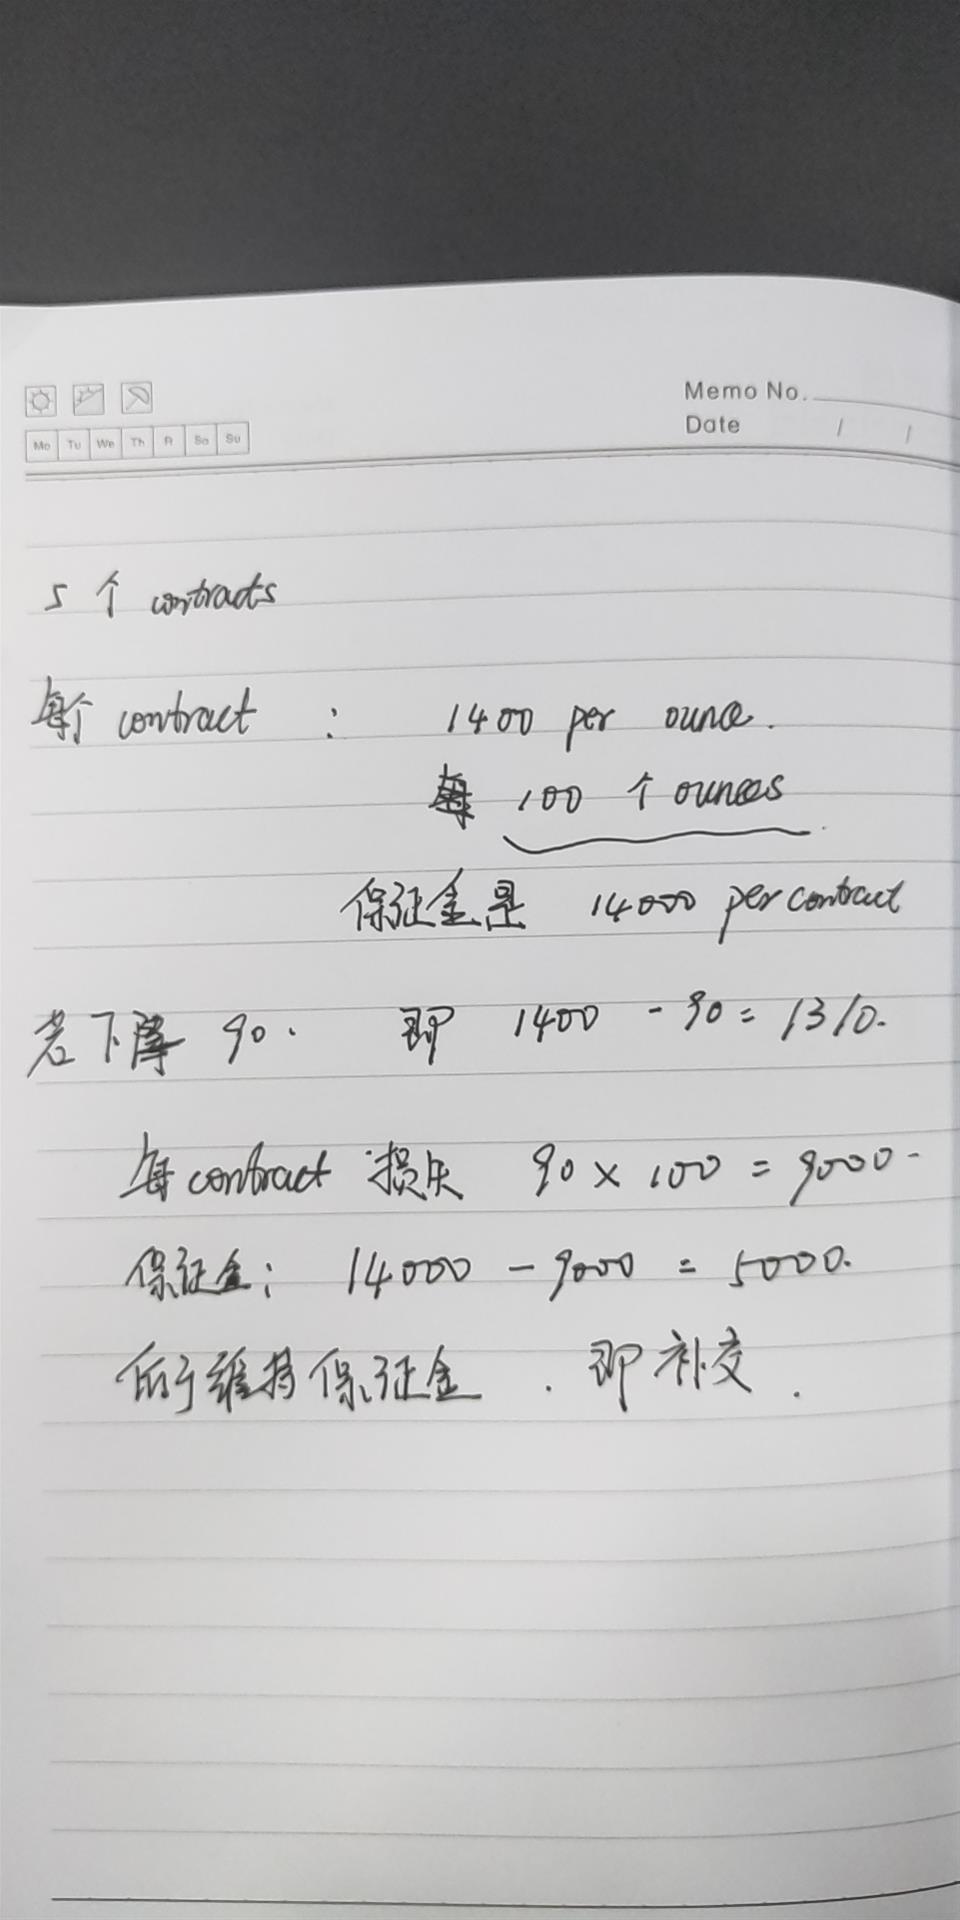 Memo No.
Date / /
Mo Tu We Th Fr Sa Su
5 个 contracts
每个 contract : 1400 per ounce.
100 个 ounces
保证金是 14000 per contract
若下降 90. 即 1400 - 90 = 1310.
每 contract 损失 90 × 100 = 9000.
保证金: 14000 - 9000 = 5000.
低于维持保证金. 即补交.